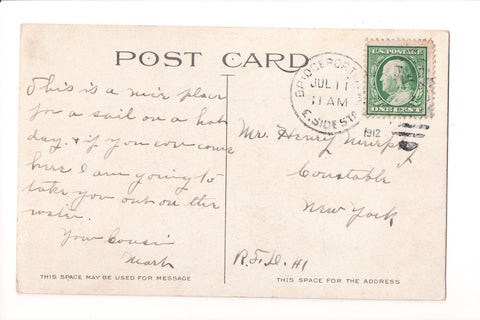 POST CARD
U.S. POSTAGE
ONE CENT
BRIDGEPORT
JUL 11
11 AM
E. SIDE STA.
1912
This is a nice place
for a sail on a hot
day. & if you ever come
here I am going to
take you out on the
water.
Your Cousin
Mark
Mr. Henry Murphy
Constable
New York
R.F.D. #1
THIS SPACE MAY BE USED FOR MESSAGE
THIS SPACE FOR THE ADDRESS